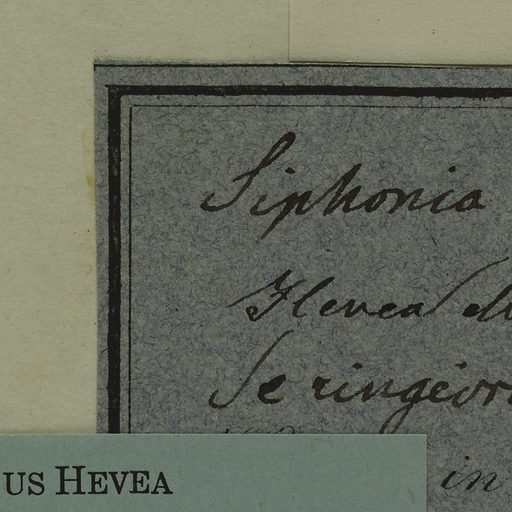 Siphonia
Hevea
Se ringéor
in
US HEVEA